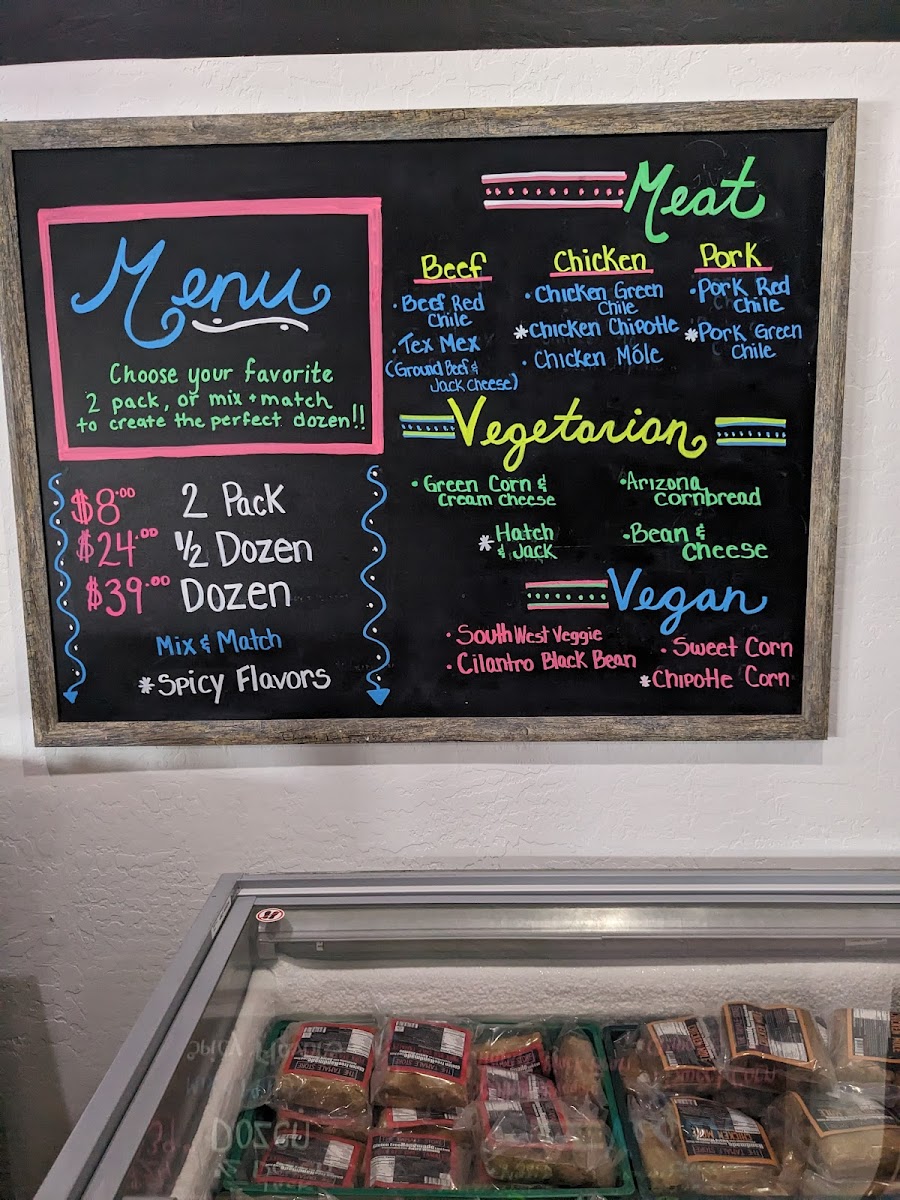 Menu
Choose your favorite
2 pack, or mix + match
to create the perfect dozen!!
$8.00 2 Pack
$24.00 1/2 Dozen
$39.00 Dozen
Mix & Match
*Spicy Flavors
Meat
Beef
• Beef Red
Chile
• Tex Mex
(Ground Beef &
Jack Cheese)
Chicken
• Chicken Green
Chile
*Chicken Chipotle
• Chicken Móle
Pork
• Pork Red
Chile
*Pork Green
Chile
Vegetarian
• Green Corn &
Cream Cheese
* Hatch
& Jack
• Arizona
cornbread
• Bean &
Cheese
Vegan
• SouthWest Veggie
• Cilantro Black Bean
• Sweet Corn
*Chipotle Corn
THE TAMALE STORE
THE TAMALE STORE
CHICKEN MOLE
THE TAMALE STORE